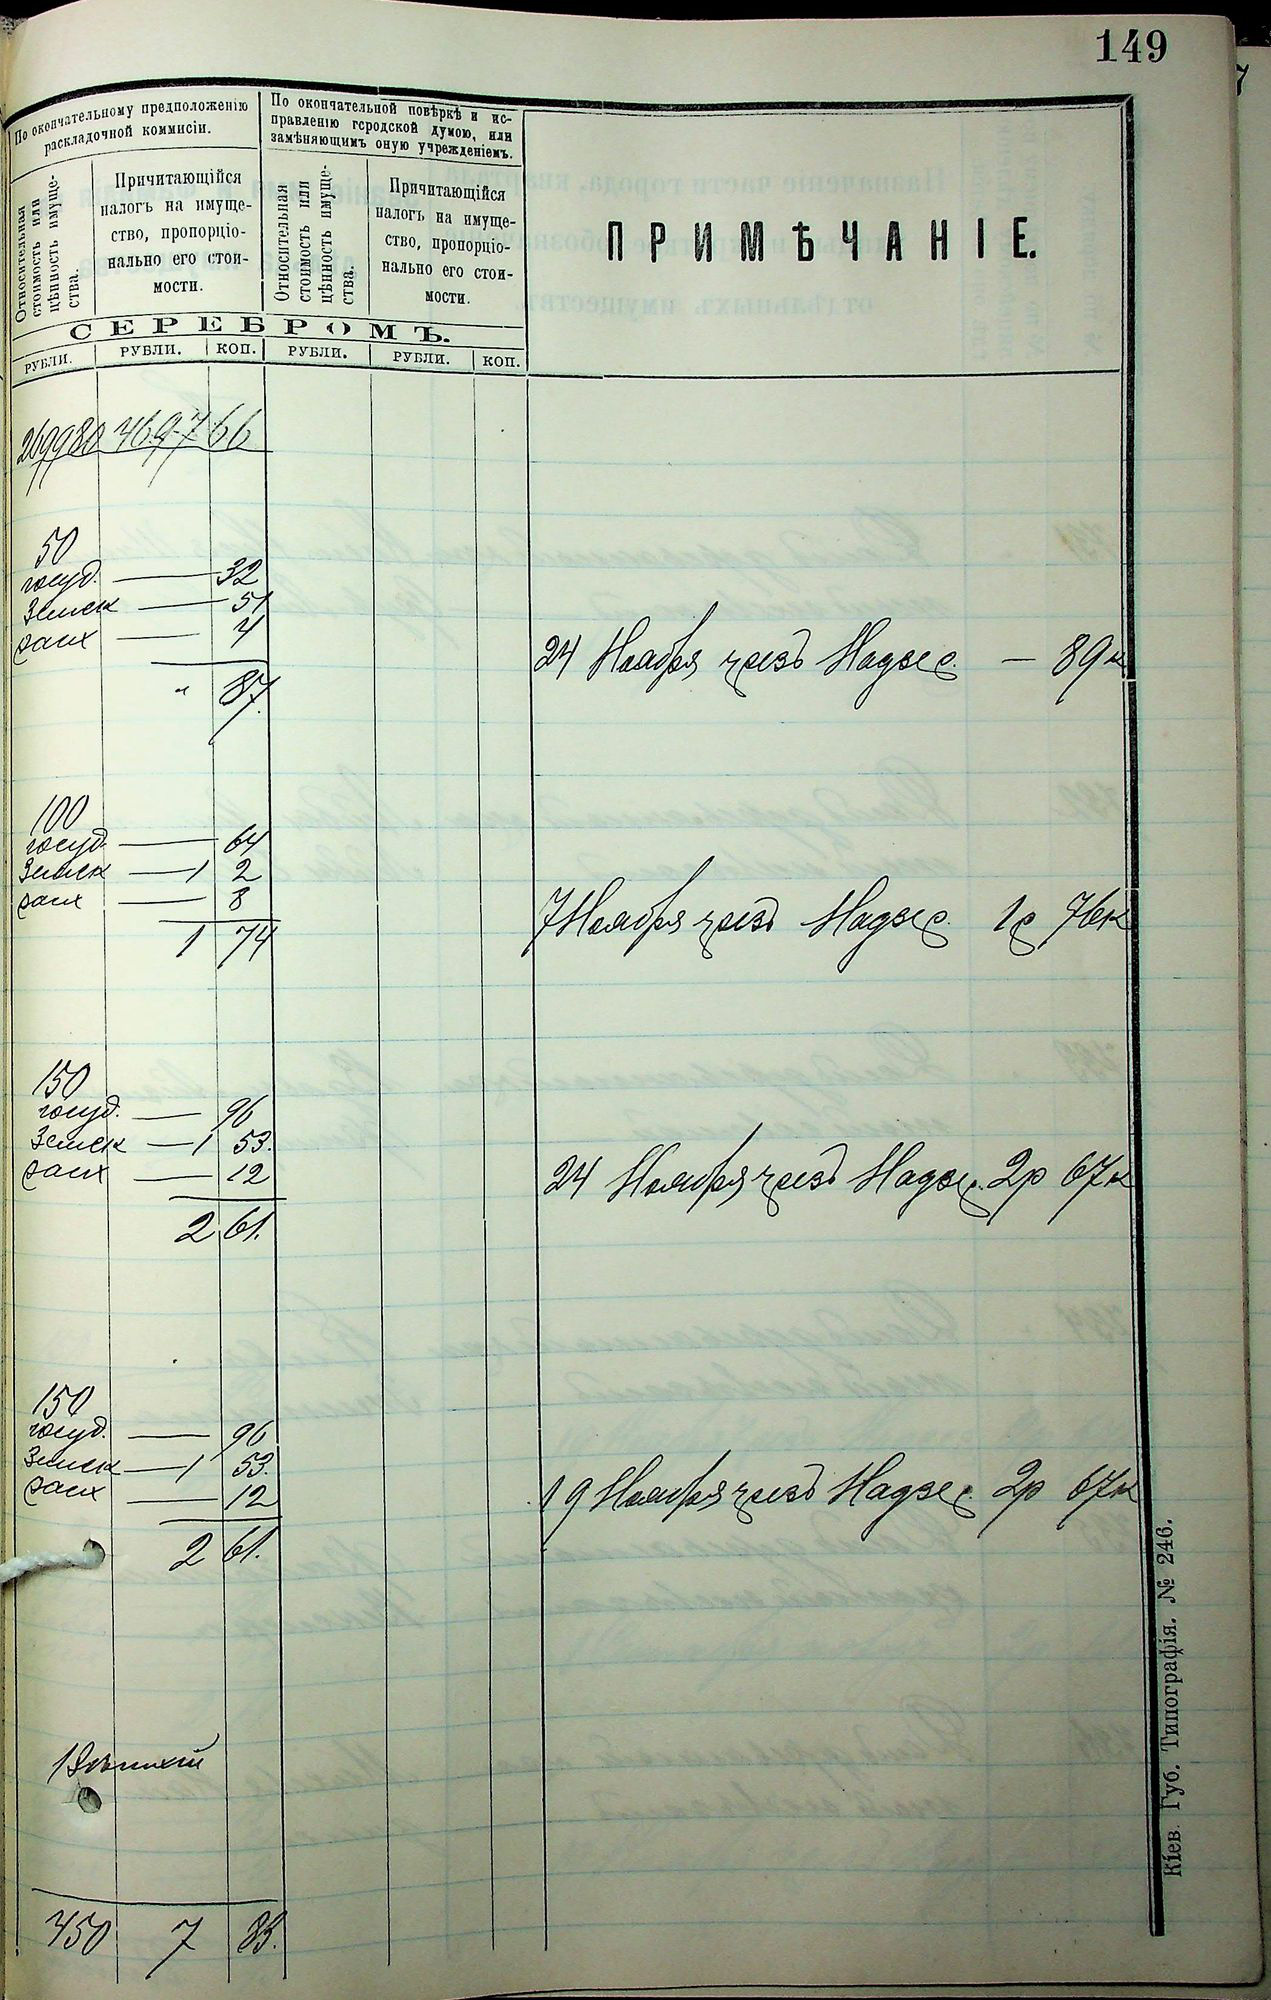 149
По окончательному предположенію
раскладочной коммисіи.
По окончательной повѣркѣ и ис-
правленію городской думою, или
замѣняющимъ оную учрежденіемъ.
Относительная
стоимость или
цѣнность имуще-
ства.
Причитающійся
налогъ на имуще-
ство, пропорціо-
нально его стои-
мости.
Относительная
стоимость или
цѣнность имуще-
ства.
Причитающійся
налогъ на имуще-
ство, пропорціо-
нально его стои-
мости.
ПРИМѢЧАНІЕ.
СЕРЕБРОМЪ.
РУБЛИ. РУБЛИ. КОП. РУБЛИ. РУБЛИ. КОП.
269980 4697 66
50
госуд. — 32
Земск — 51
4
" 87.
24 Ноября чрезъ Надзе. — 89к
100
госуд — 64
Земск — 1 2
— 8
1 74
7 Ноября чрезъ Надзе. 1р 76к
150
госуд. — 96
Земск — 1 53.
— 12
2 61.
24 Ноября чрезъ Надзе. 2р 67к
150
госуд. — 96
Земск — 1 53.
— 12
2 61.
19 Ноября чрезъ Надзе. 2р 67к
450 7 83.
Кіев. Губ. Типографія. № 246.